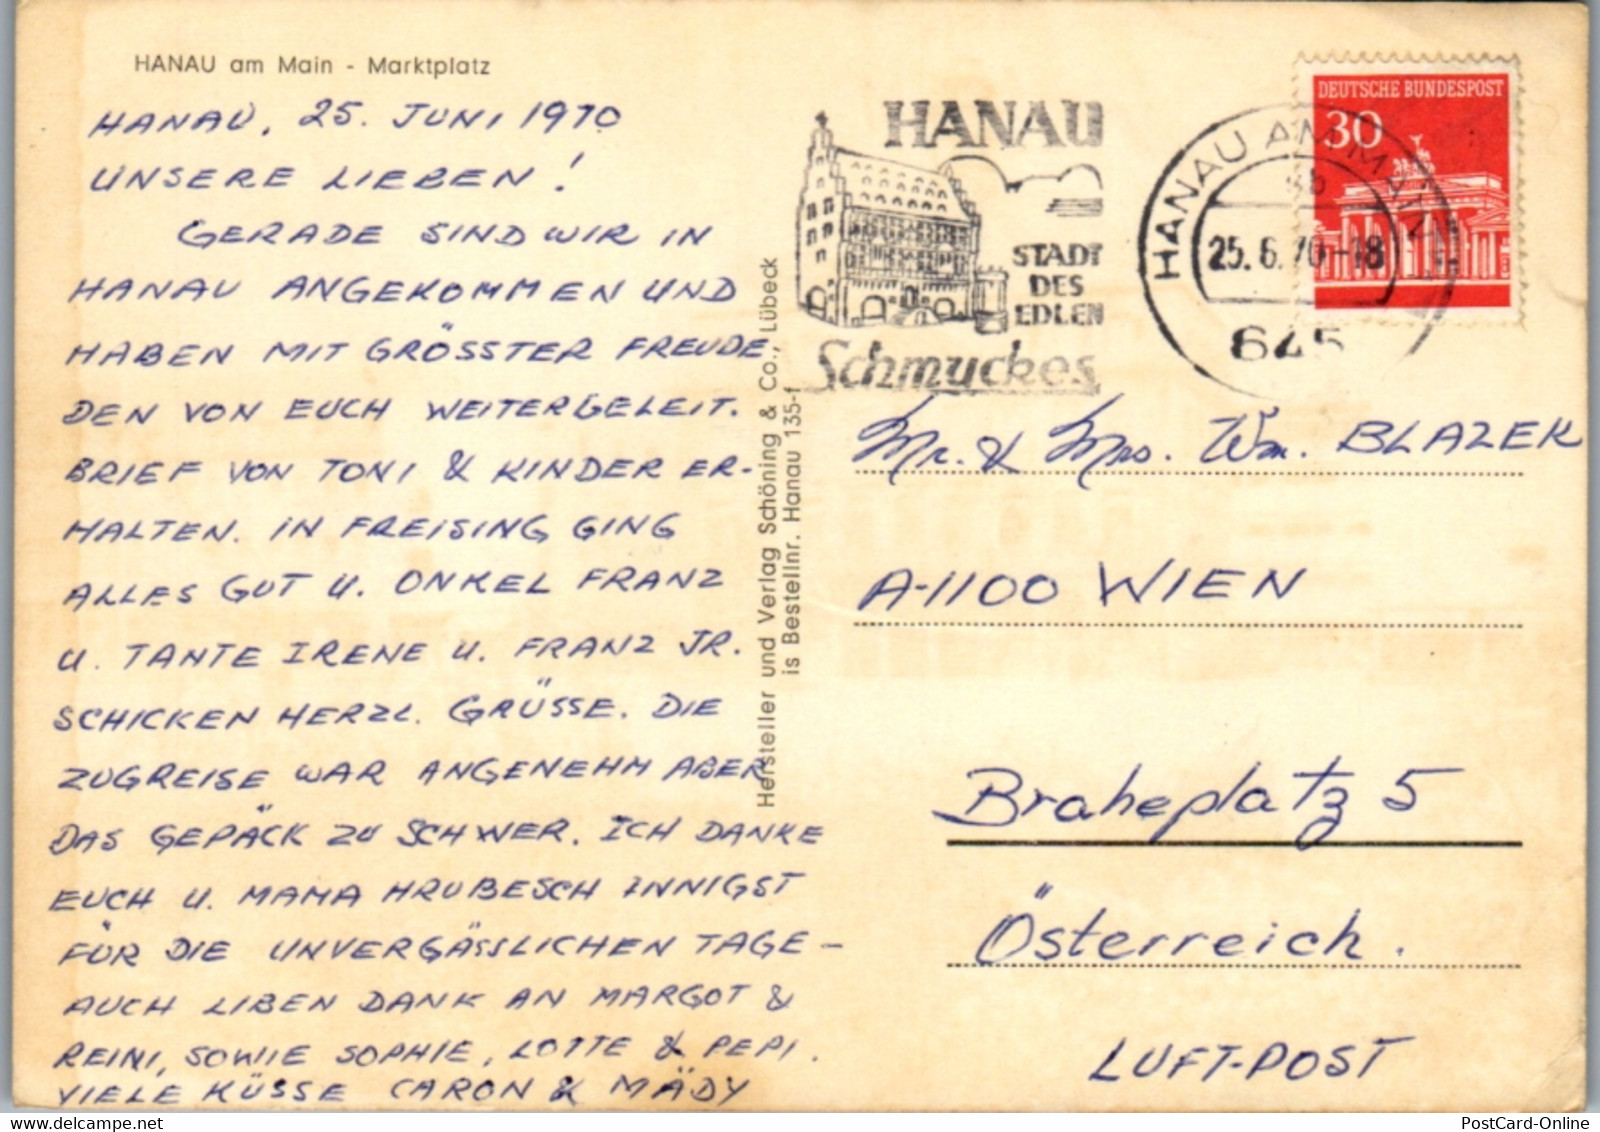 HANAU am Main - Marktplatz
HANAU, 25. JUNI 1970
UNSERE LIEBEN!
GERADE SIND WIR IN
HANAU ANGEKOMMEN UND
HABEN MIT GRÖSSTER FREUDE
DEN VON EUCH WEITERGELEIT.
BRIEF VON TONI & KINDER ER-
HALTEN. IN FREISING GING
ALLES GUT U. ONKEL FRANZ
U. TANTE IRENE U. FRANZ JR.
SCHICKEN HERZL. GRÜSSE. DIE
ZUGREISE WAR ANGENEHM ABER
DAS GEPÄCK ZU SCHWER. ICH DANKE
EUCH U. MAMA HRUBESCH INNIGST
FÜR DIE UNVERGÄSSLICHEN TAGE -
AUCH LIBEN DANK AN MARGOT &
REINI, SOWIE SOPHIE, LOTTE & PEPI.
VIELE KÜSSE CARON & MÄDY
Hersteller und Verlag Schöning & Co., Lübeck
is Bestellnr. Hanau 135-f
HANAU
STADT
DES
EDLEN
Schmuckes
HANAU AM MAIN
25.6.70-18
645
DEUTSCHE BUNDESPOST
30
Mr. & Mrs. Wm. BLAZEK
A-1100 WIEN
Braheplatz 5
Österreich.
LUFT-POST
PostCard-Online